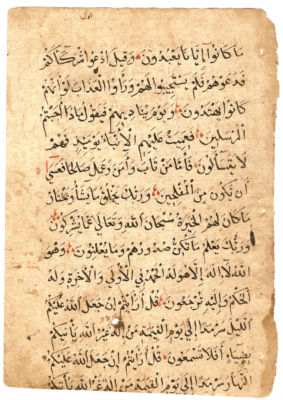 ما كانوا إيانا يعبدون وقيل ادعوا شركاءكم
فدعوهم فلم يستجيبوا لهم ورأوا العذاب لو أنهم
كانوا يهتدون ويوم يناديهم فيقول ماذا أجبتم
المرسلين فعميت عليهم الأنباء يومئذ فهم
لا يتساءلون فأما من تاب وآمن وعمل صالحا فعسى
أن يكون من المفلحين وربك يخلق ما يشاء ويختار
ما كان لهم الخيرة سبحان الله وتعالى عما يشركون
وربك يعلم ما تكن صدورهم وما يعلنون وهو
الله لا إله إلا هو له الحمد في الأولى والآخرة وله
الحكم وإليه ترجعون قل أرأيتم إن جعل الله عليكم
الليل سرمدا إلى يوم القيمة من إله غير الله يأتيكم
بضياء أفلا تسمعون قل أرأيتم إن جعل الله عليكم
النهار سرمدا إلى يوم القيمة من إله غير الله يأتيكم